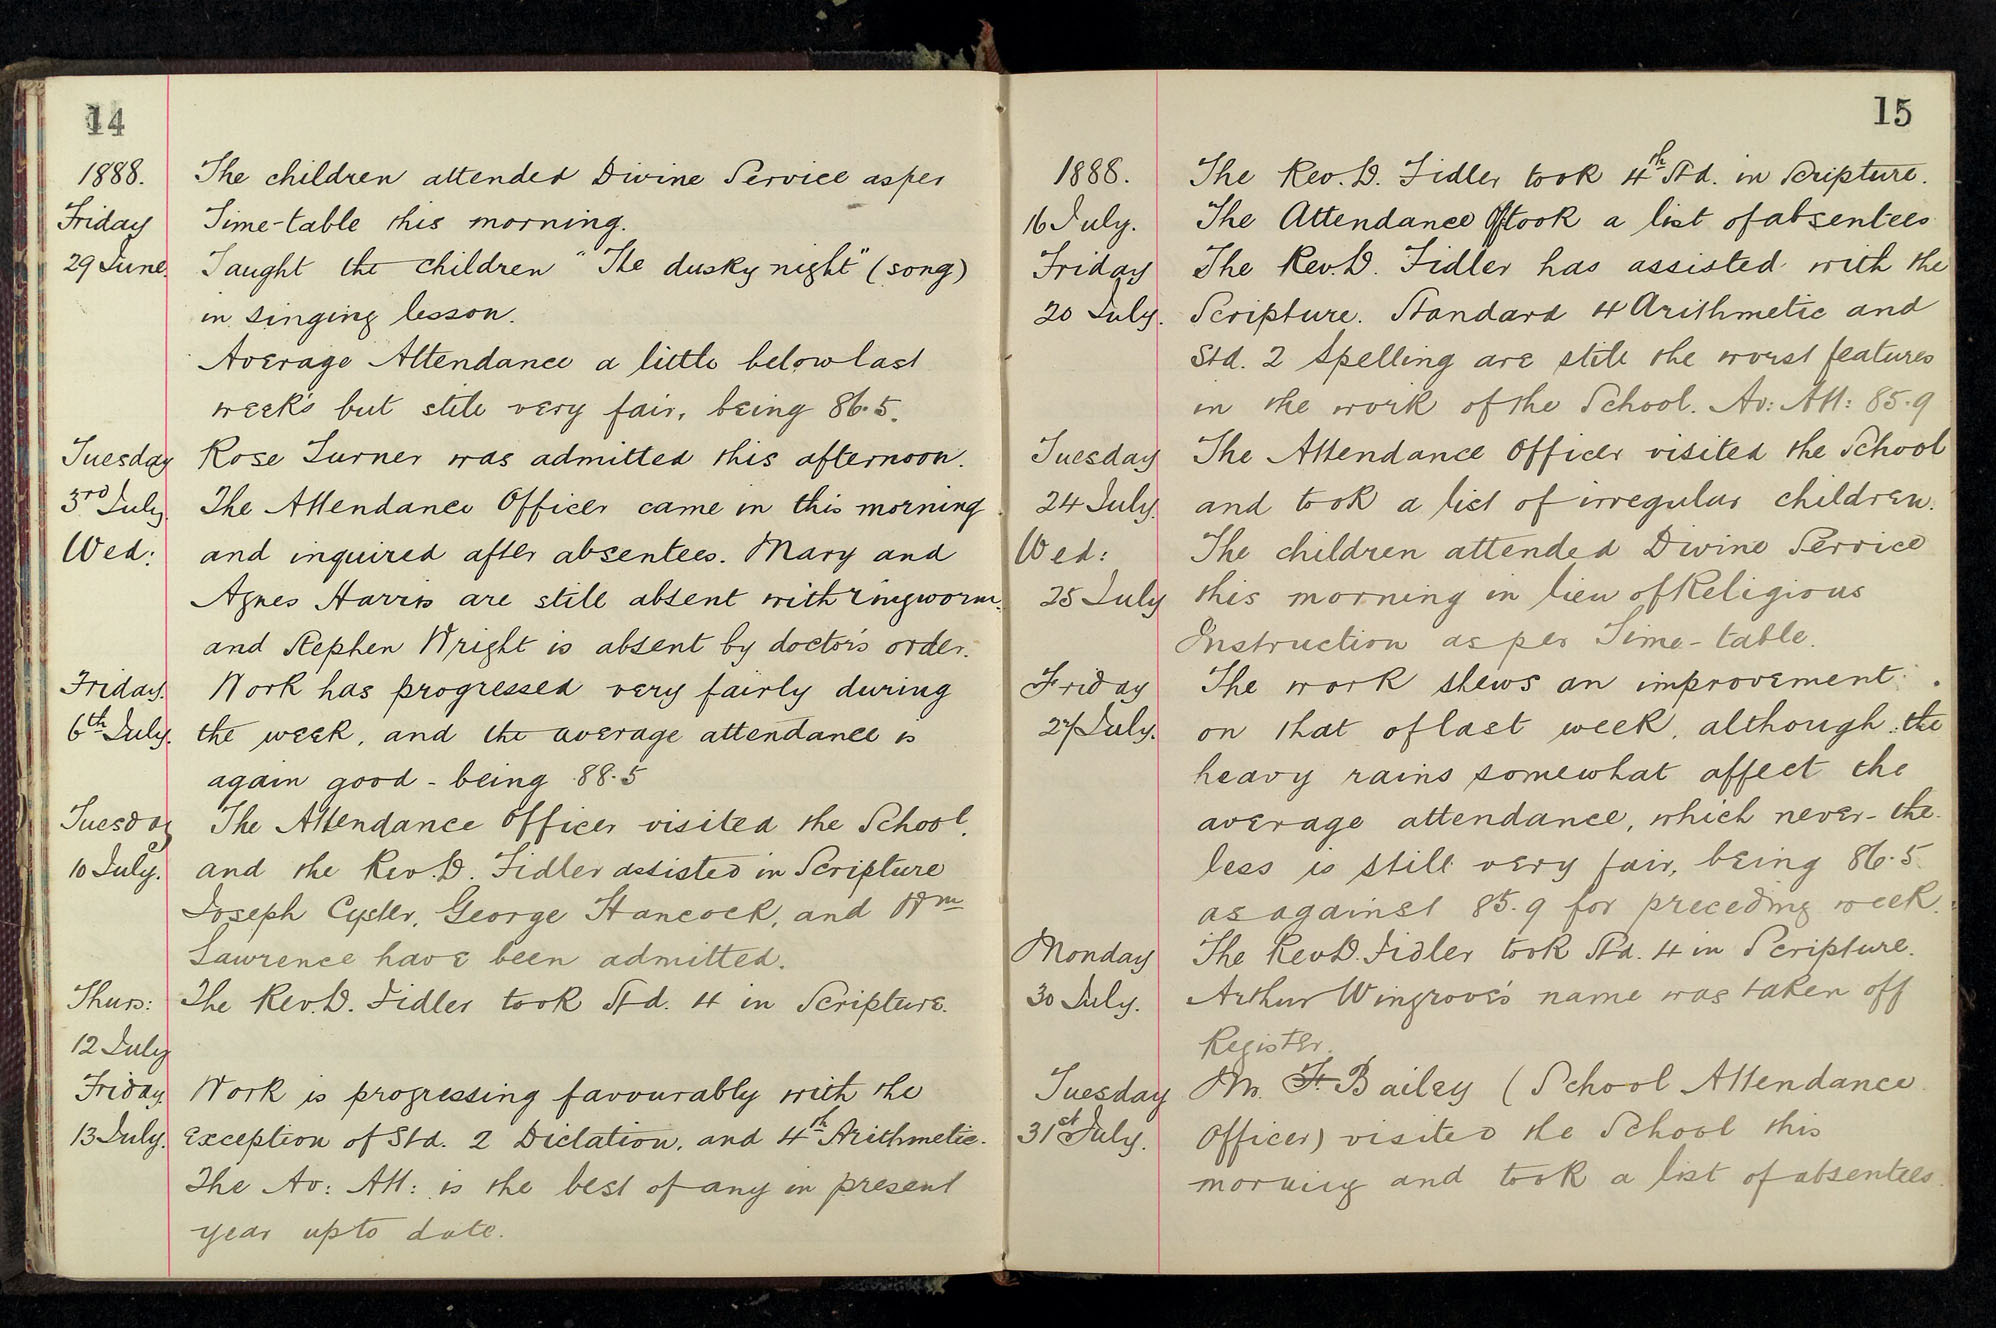 14
1888. The children attended Divine Service as per
Friday Time-table this morning.
29 June. Taught the children "The dusky night" (song)
in singing lesson.
Average Attendance a little below last
week's but still very fair, being 86.5.
Tuesday Rose Turner was admitted this afternoon.
3rd July The Attendance Officer came in this morning
Wed: and inquired after absentees. Mary and
Agnes Harris are still absent with ringworm.
and Stephen Wright is absent by doctor's order.
Friday. Work has progressed very fairly during
6th July. the week, and the average attendance is
again good - being 88.5
Tuesday The Attendance Officer visited the School,
10 July. and the Rev. D. Fidler assisted in Scripture
Joseph Cyster, George Hancock, and Wm
Lawrence have been admitted.
Thurs: The Rev. D. Fidler took Std. 4 in Scripture.
12 July
Friday. Work is progressing favourably with the
13 July. exception of Std. 2 Dictation, and 4th Arithmetic.
The Av: Att: is the best of any in present
year up to date.
15
1888. The Rev. D. Fidler took 4th Std. in Scripture.
16 July. The Attendance Off took a list of absentees
Friday The Rev. D. Fidler has assisted with the
20 July. Scripture. Standard 4 Arithmetic and
Std. 2 Spelling are still the worst features
in the work of the School. Av: Att: 85.9
Tuesday The Attendance Officer visited the School
24 July. and took a list of irregular children.
Wed: The children attended Divine Service
25 July this morning in lieu of Religious
Instruction as per Time-table.
Friday The work shews an improvement
27 July. on that of last week, although the
heavy rains somewhat affect the
average attendance, which never-the-
less is still very fair, being 86.5
as against 85.9 for preceding week.
Monday The Rev D. Fidler took Std. 4 in Scripture.
30 July. Arthur Wingrove's name was taken off
Register.
Tuesday Mr. F. Bailey (School Attendance
31st July. Officer) visited the School this
morning and took a list of absentees.